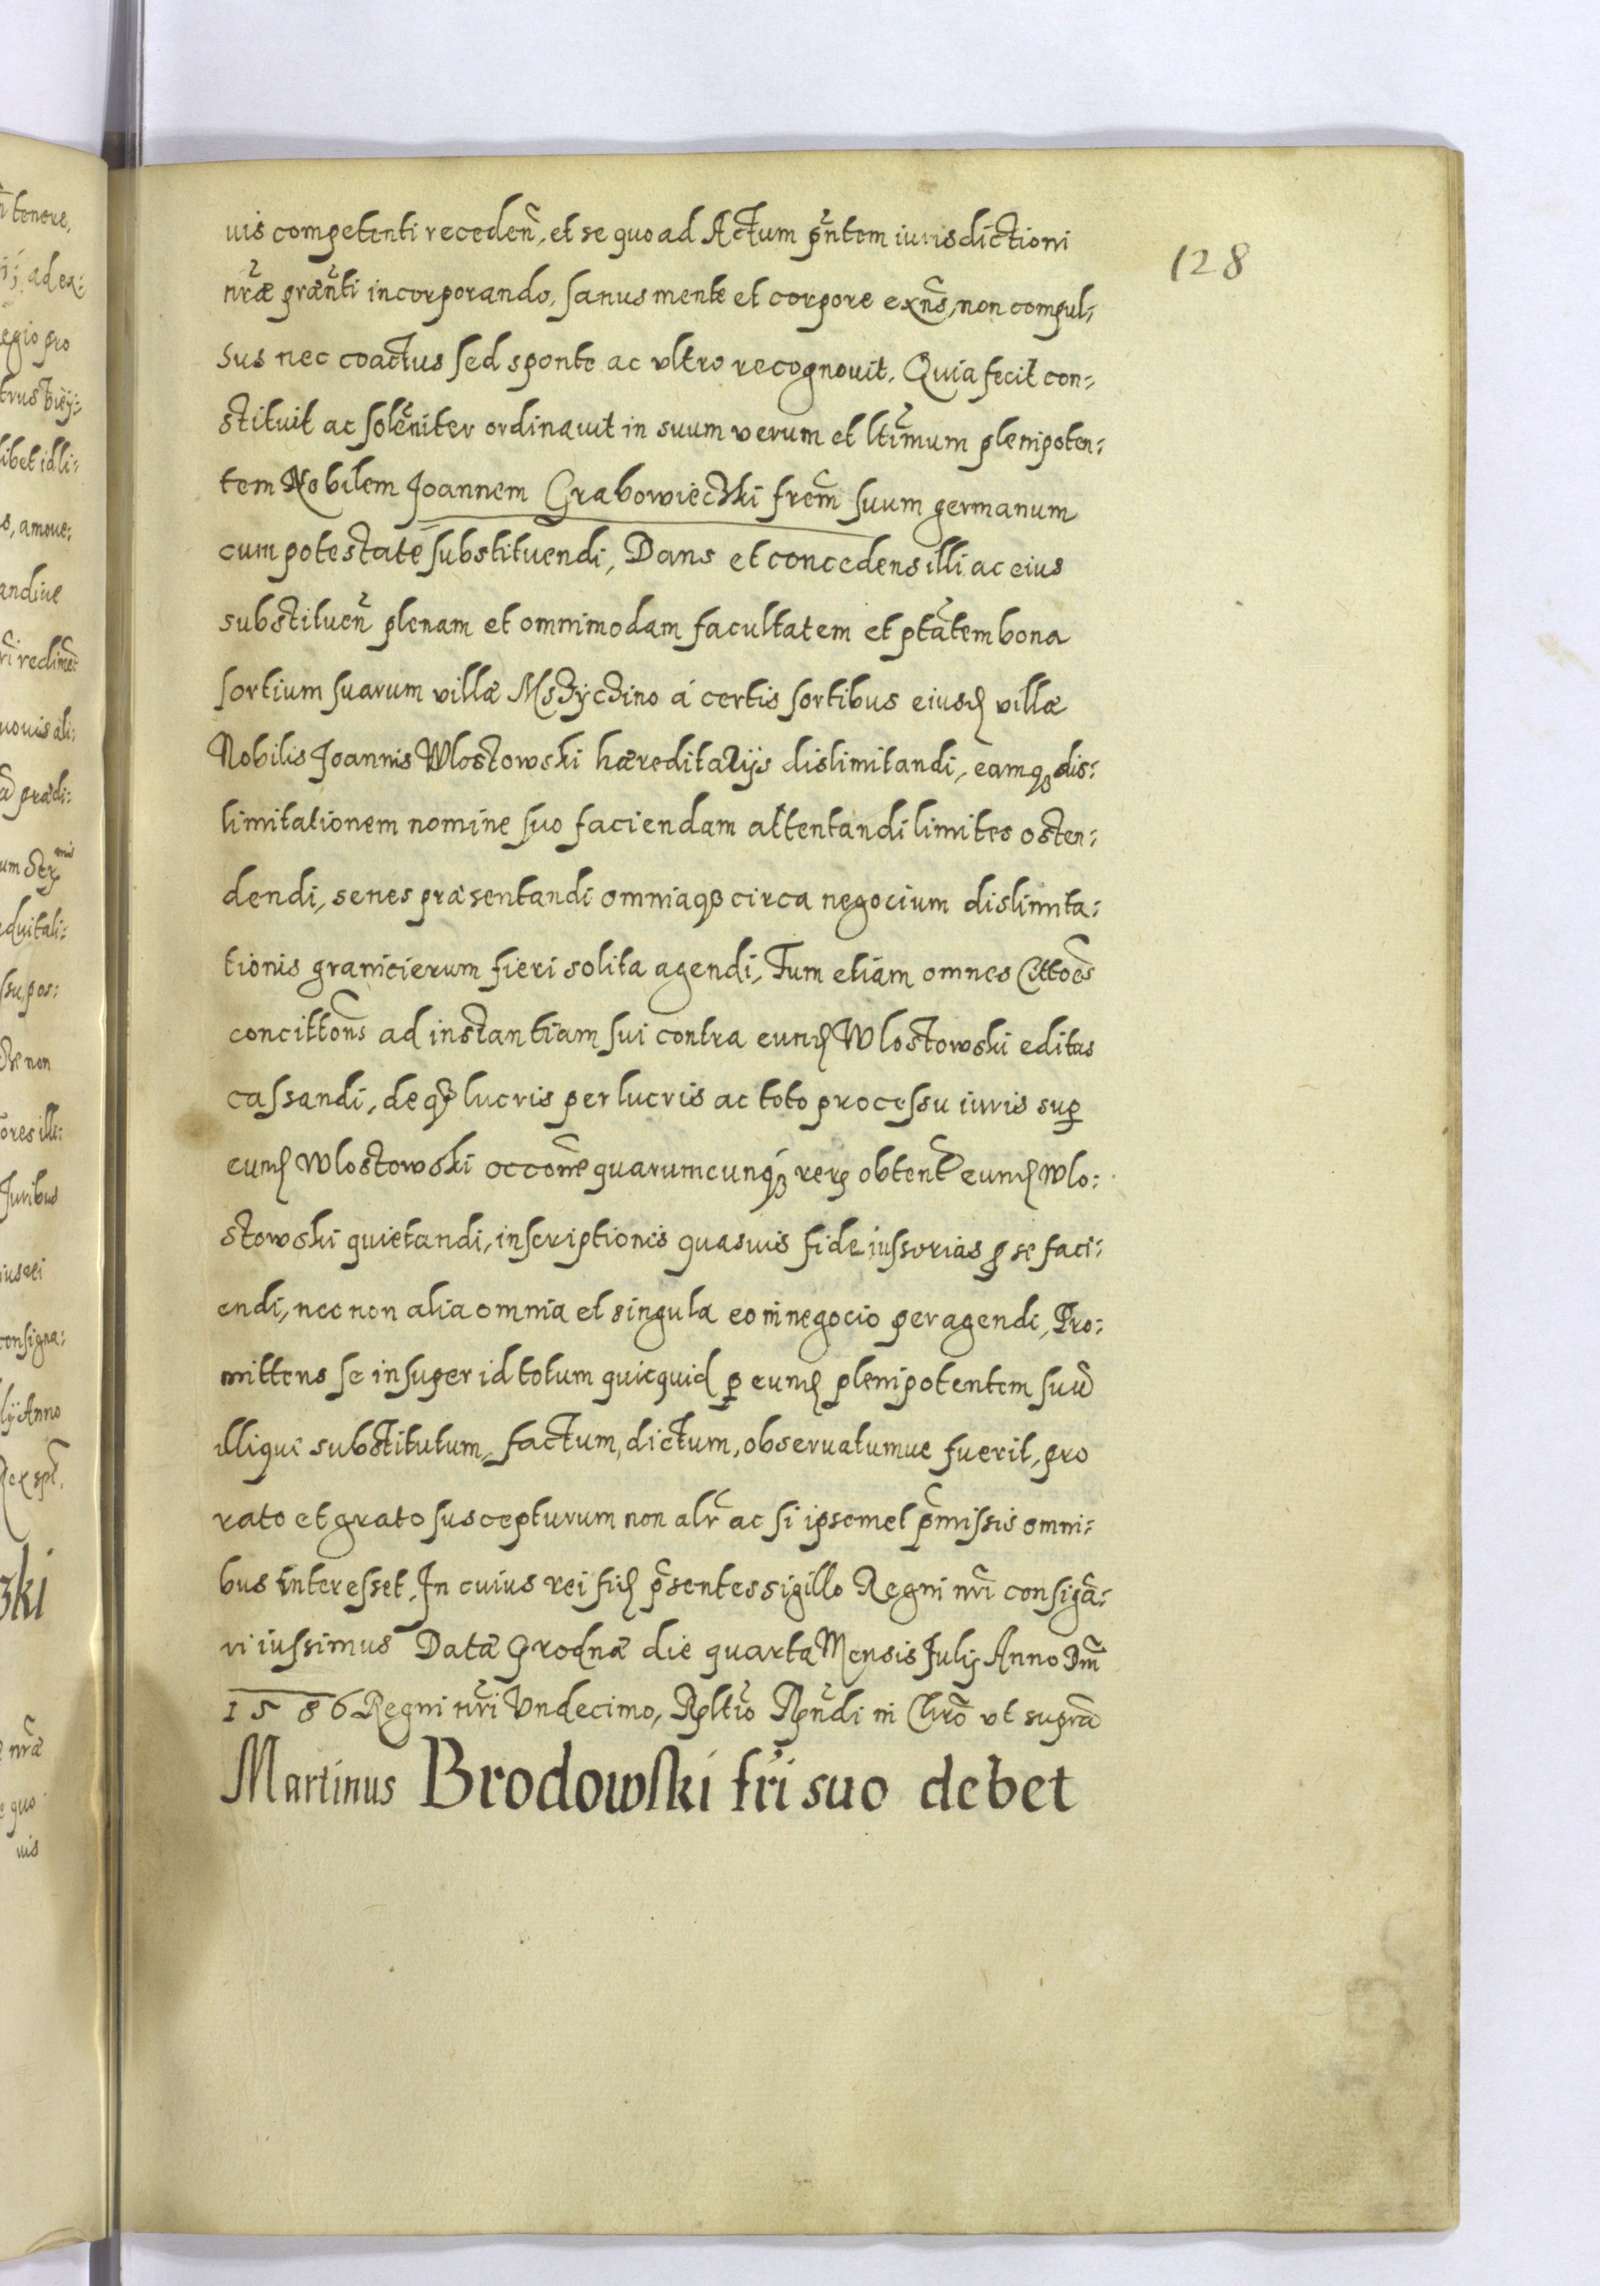 128
uis competenti receden̄, et se quo ad Actum pn̄tem iurisdictioni
nr̄æ præn̄ti incorporando, sanus mente et corpore exn̄s, non compul:
sus nec coactus sed sponte ac vltro recognouit. Quia fecit con:
stituit ac solēniter ordinauit in suum verum et ltīmum plenipoten:
tem Nobilem Joannem Grabowieczki frēm suum germanum
cum potestate substituendi, Dans et concedens illi ac eius
substituen̄ plenam et omnimodam facultatem et ptātem bona
sortium suarum villæ Msczyczino á certis sortibus eiusd villæ
Nobilis Joannis Wlostowski hæreditarijs dislimitandi, eamqꝫ dis:
limitationem nomine suo faciendam attentandi limites osten:
dendi, senes præsentandi omniaqꝫ circa negocium dislimita:
tionis granicierum fieri solita agendi, Tum etiam omnes Cittoēs
concittōns ad instantiam sui contra eund Wlostowski editas
cassandi, deqꝫ lucris perlucris ac toto processu iuris suꝑ
eund Wlostowski occōne quarumcunqꝫ reꝝ obten̄t eund Wlo:
stowski quietandi, inscriptionis quasuis fideiussorias ꝓ se faci:
endi, nec non alia omnia et singula eo in negocio peragendi, Pro:
mittens se insuper id totum quicquid ꝑ eund plenipotentem suū
illique substitutum, factum, dictum, obseruatumue fuerit, pro
rato et grato suscepturum non alr̄ ac si ipsemet p̄missis omni:
bus interesset. In cuius rei fid p̄sentes sigillo Regni nr̄i consigā:
ri iussimus Datæ Grodnæ die quarta Mensis Julij Anno Dn̄i
1586 Regni nr̄i Vndecimo, Rpltīo Rpn̄di in Chrō vt suprā
Martinus Brodowski fr̄i suo debet